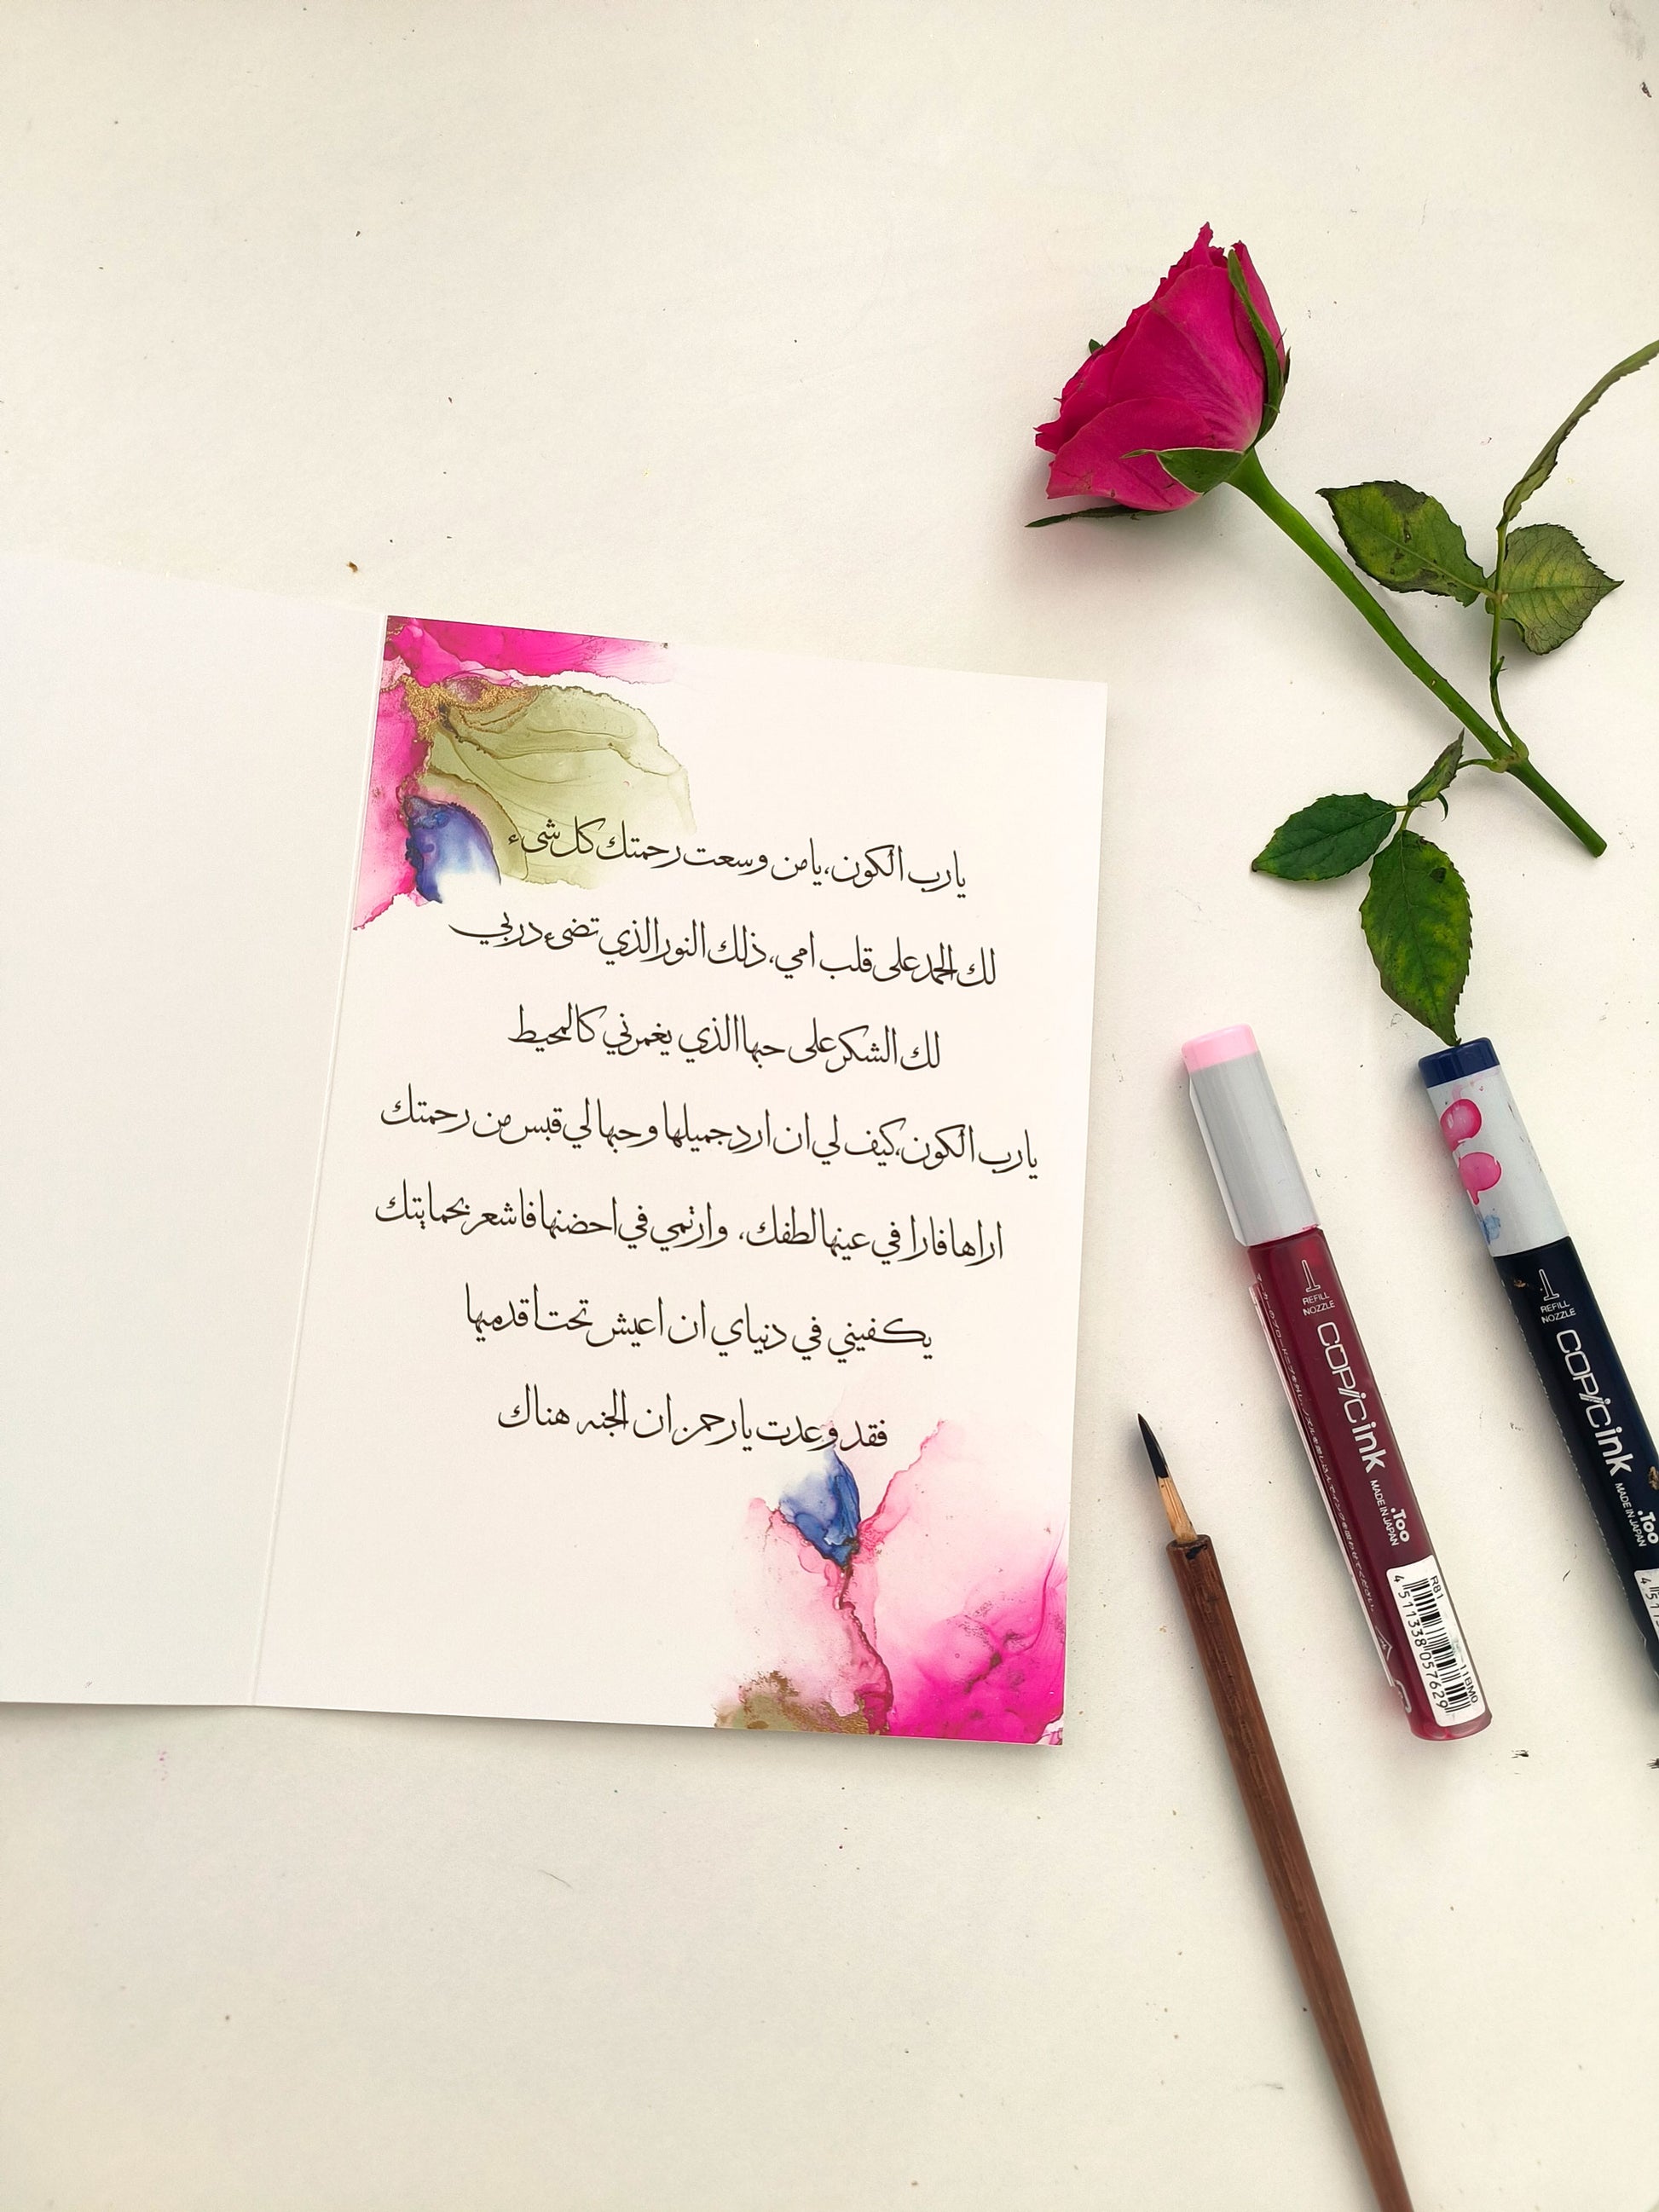 يارب الكون،يامن وسعت رحمتك كل شىء
لك الحمد على قلب امي، ذلك النور الذي تضىء دربي
لك الشكر على حبها الذي يغمرني كالمحيط
يارب الكون،كيف لي ان ارد جميلها وحبها لي قبس من رحمتك
اراها فارا في عينها لطفك، وارتمي في احضنها فاشعر بحمايتك
يكفيني في دنياي ان اعيش تحت اقدميها
فقد وعدت يارحمن ان الجنه هناك
1
REFILL
NOZZLE
COPIC ink
MADE IN JAPAN
.Too
R81
4 511338 057629
11BM0
1
REFILL
NOZZLE
COPIC ink
MADE IN JAPAN
.Too